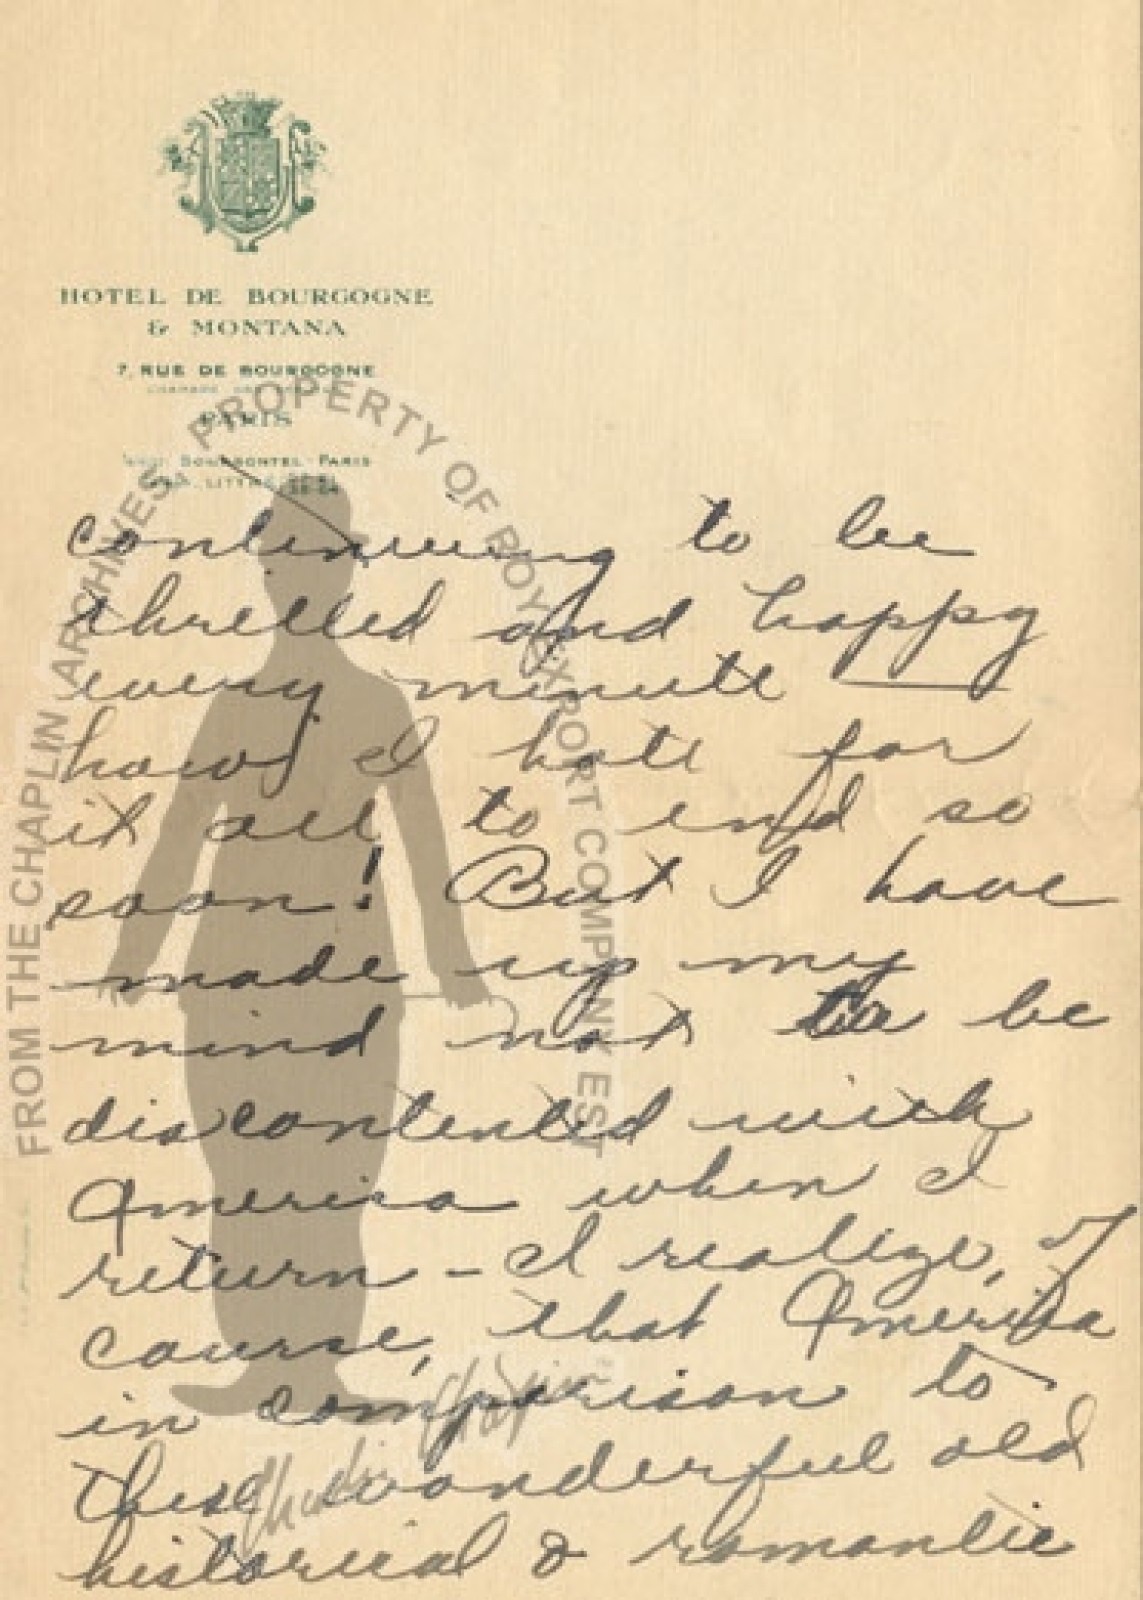 HOTEL DE BOURGOGNE
& MONTANA
7, RUE DE BOURGOGNE
PARIS
BOURBONTEL-PARIS
LITTRÉ
FROM THE CHAPLIN ARCHIVES. PROPERTY OF ROY EXPORT COMPANY EST
continuing to be
thrilled and happy
every minute —
how I hate for
it all to end so
soon! But I have
made up my
mind not to be
discontented with
America when I
return - I realize, of
course, that America
in comparison to
these wonderful old
historical & romantic
Charlie Chaplin